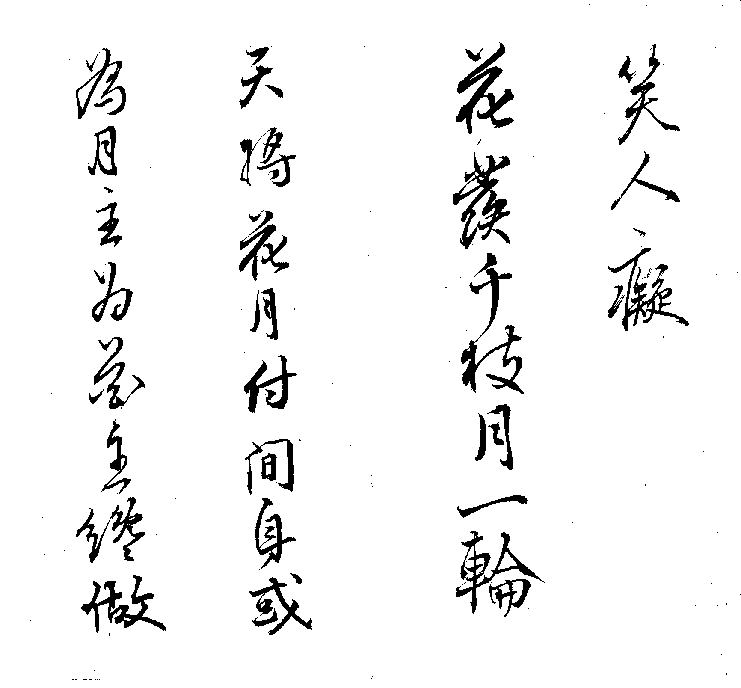 笑人癡
花發千枝月一輪
天將花月付間身或
為月主為花主纔做